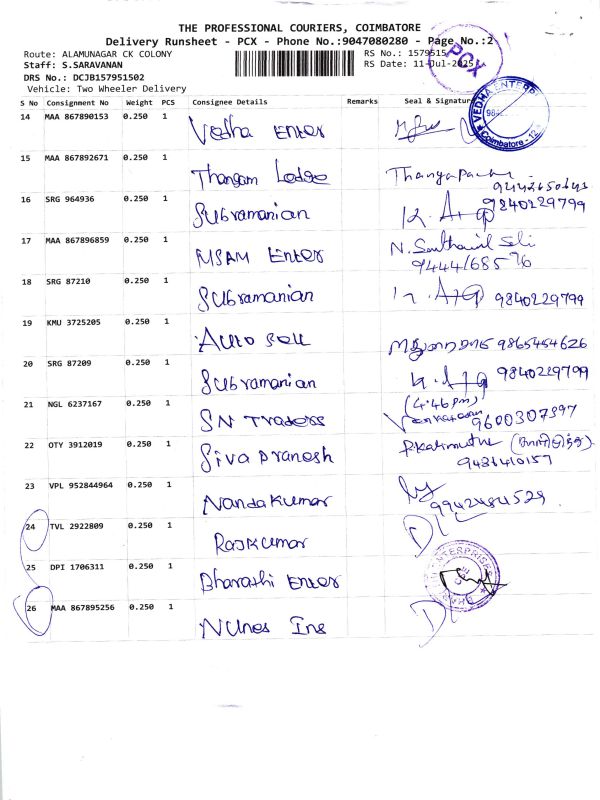 THE PROFESSIONAL COURIERS, COIMBATORE
Delivery Runsheet - PCX - Phone No.:9047080280 - Page No.:2
Route: ALAMUNAGAR CK COLONY
RS No.: 1579515
Staff: S.SARAVANAN
RS Date: 11-Jul-2025
PCX
DRS No.: DCJB157951502
Vehicle: Two Wheeler Delivery
S No Consignment No Weight PCS Consignee Details Remarks Seal & Signature
14 MAA 867890153 0.250 1 Vedha Enter
VEDHA ENTER
Coimbatore - 12
15 MAA 867892671 0.250 1 Thangam Lodge
16 SRG 964936 0.250 1 Subramanian 9840229799
17 MAA 867896859 0.250 1 MSAM Enter
9444168576
18 SRG 87210 0.250 1 Subramanian 9840229799
19 KMU 3725205 0.250 1 Auto sell 9865454626
20 SRG 87209 0.250 1 Subramanian 9840229799
(4.46pm)
21 NGL 6237167 0.250 1 SN Traders 9600307397
22 OTY 3912019 0.250 1 Siva Pranesh
23 VPL 952844964 0.250 1 Nandakumar
24 TVL 2922809 0.250 1 Rajkumar DL
25 DPI 1706311 0.250 1 Bharathi Enter
ENTERPRISES
26 MAA 867895256 0.250 1 Nunes Ins DL